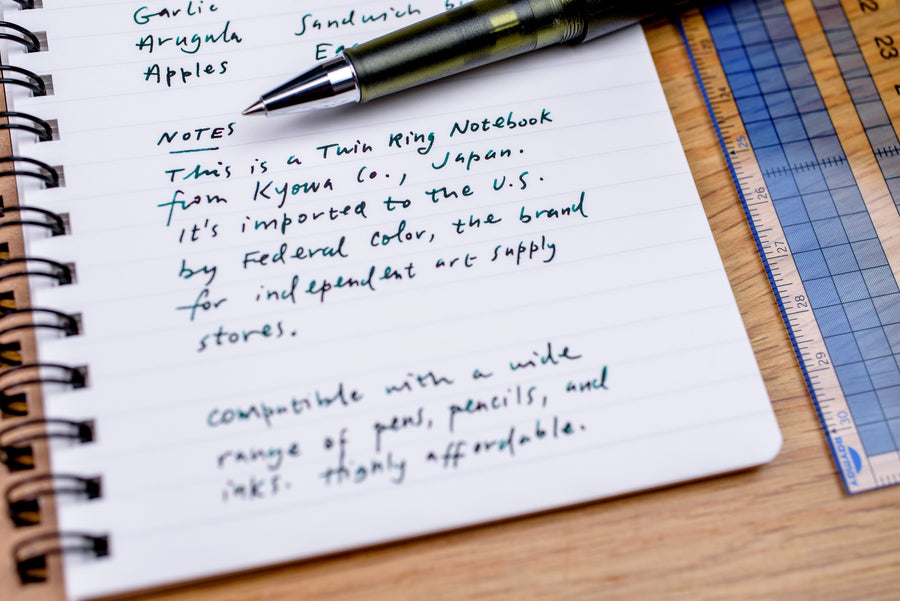 Garlic
Arugula Sandwich
Apples
NOTES
This is a Twin Ring Notebook
from Kyowa Co., Japan.
It's imported to the U.S.
by Federal Color, the brand
for independent art supply
stores.
compatible with a wide
range of pens, pencils, and
inks. Highly affordable.
23
24
25
26
27
28
29
30